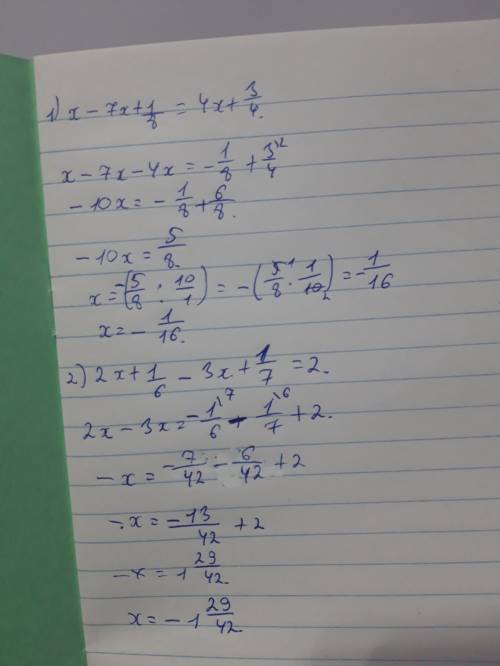 1) x - 7x + 1/8 = 4x + 3/4.
x - 7x - 4x = - 1/8 + 3/4 \2
- 10x = - 1/8 + 6/8.
- 10x = 5/8.
x = -(5/8 : 10/1) = -(5/8 1 · 1/10 2) = - 1/16
x = - 1/16.
2) 2x + 1/6 - 3x + 1/7 = 2.
2x - 3x = - 1/6 \7 - 1/7 \6 + 2.
- x = - 7/42 - 6/42 + 2
- x = - 13/42 + 2
- x = 1 29/42.
x = - 1 29/42.